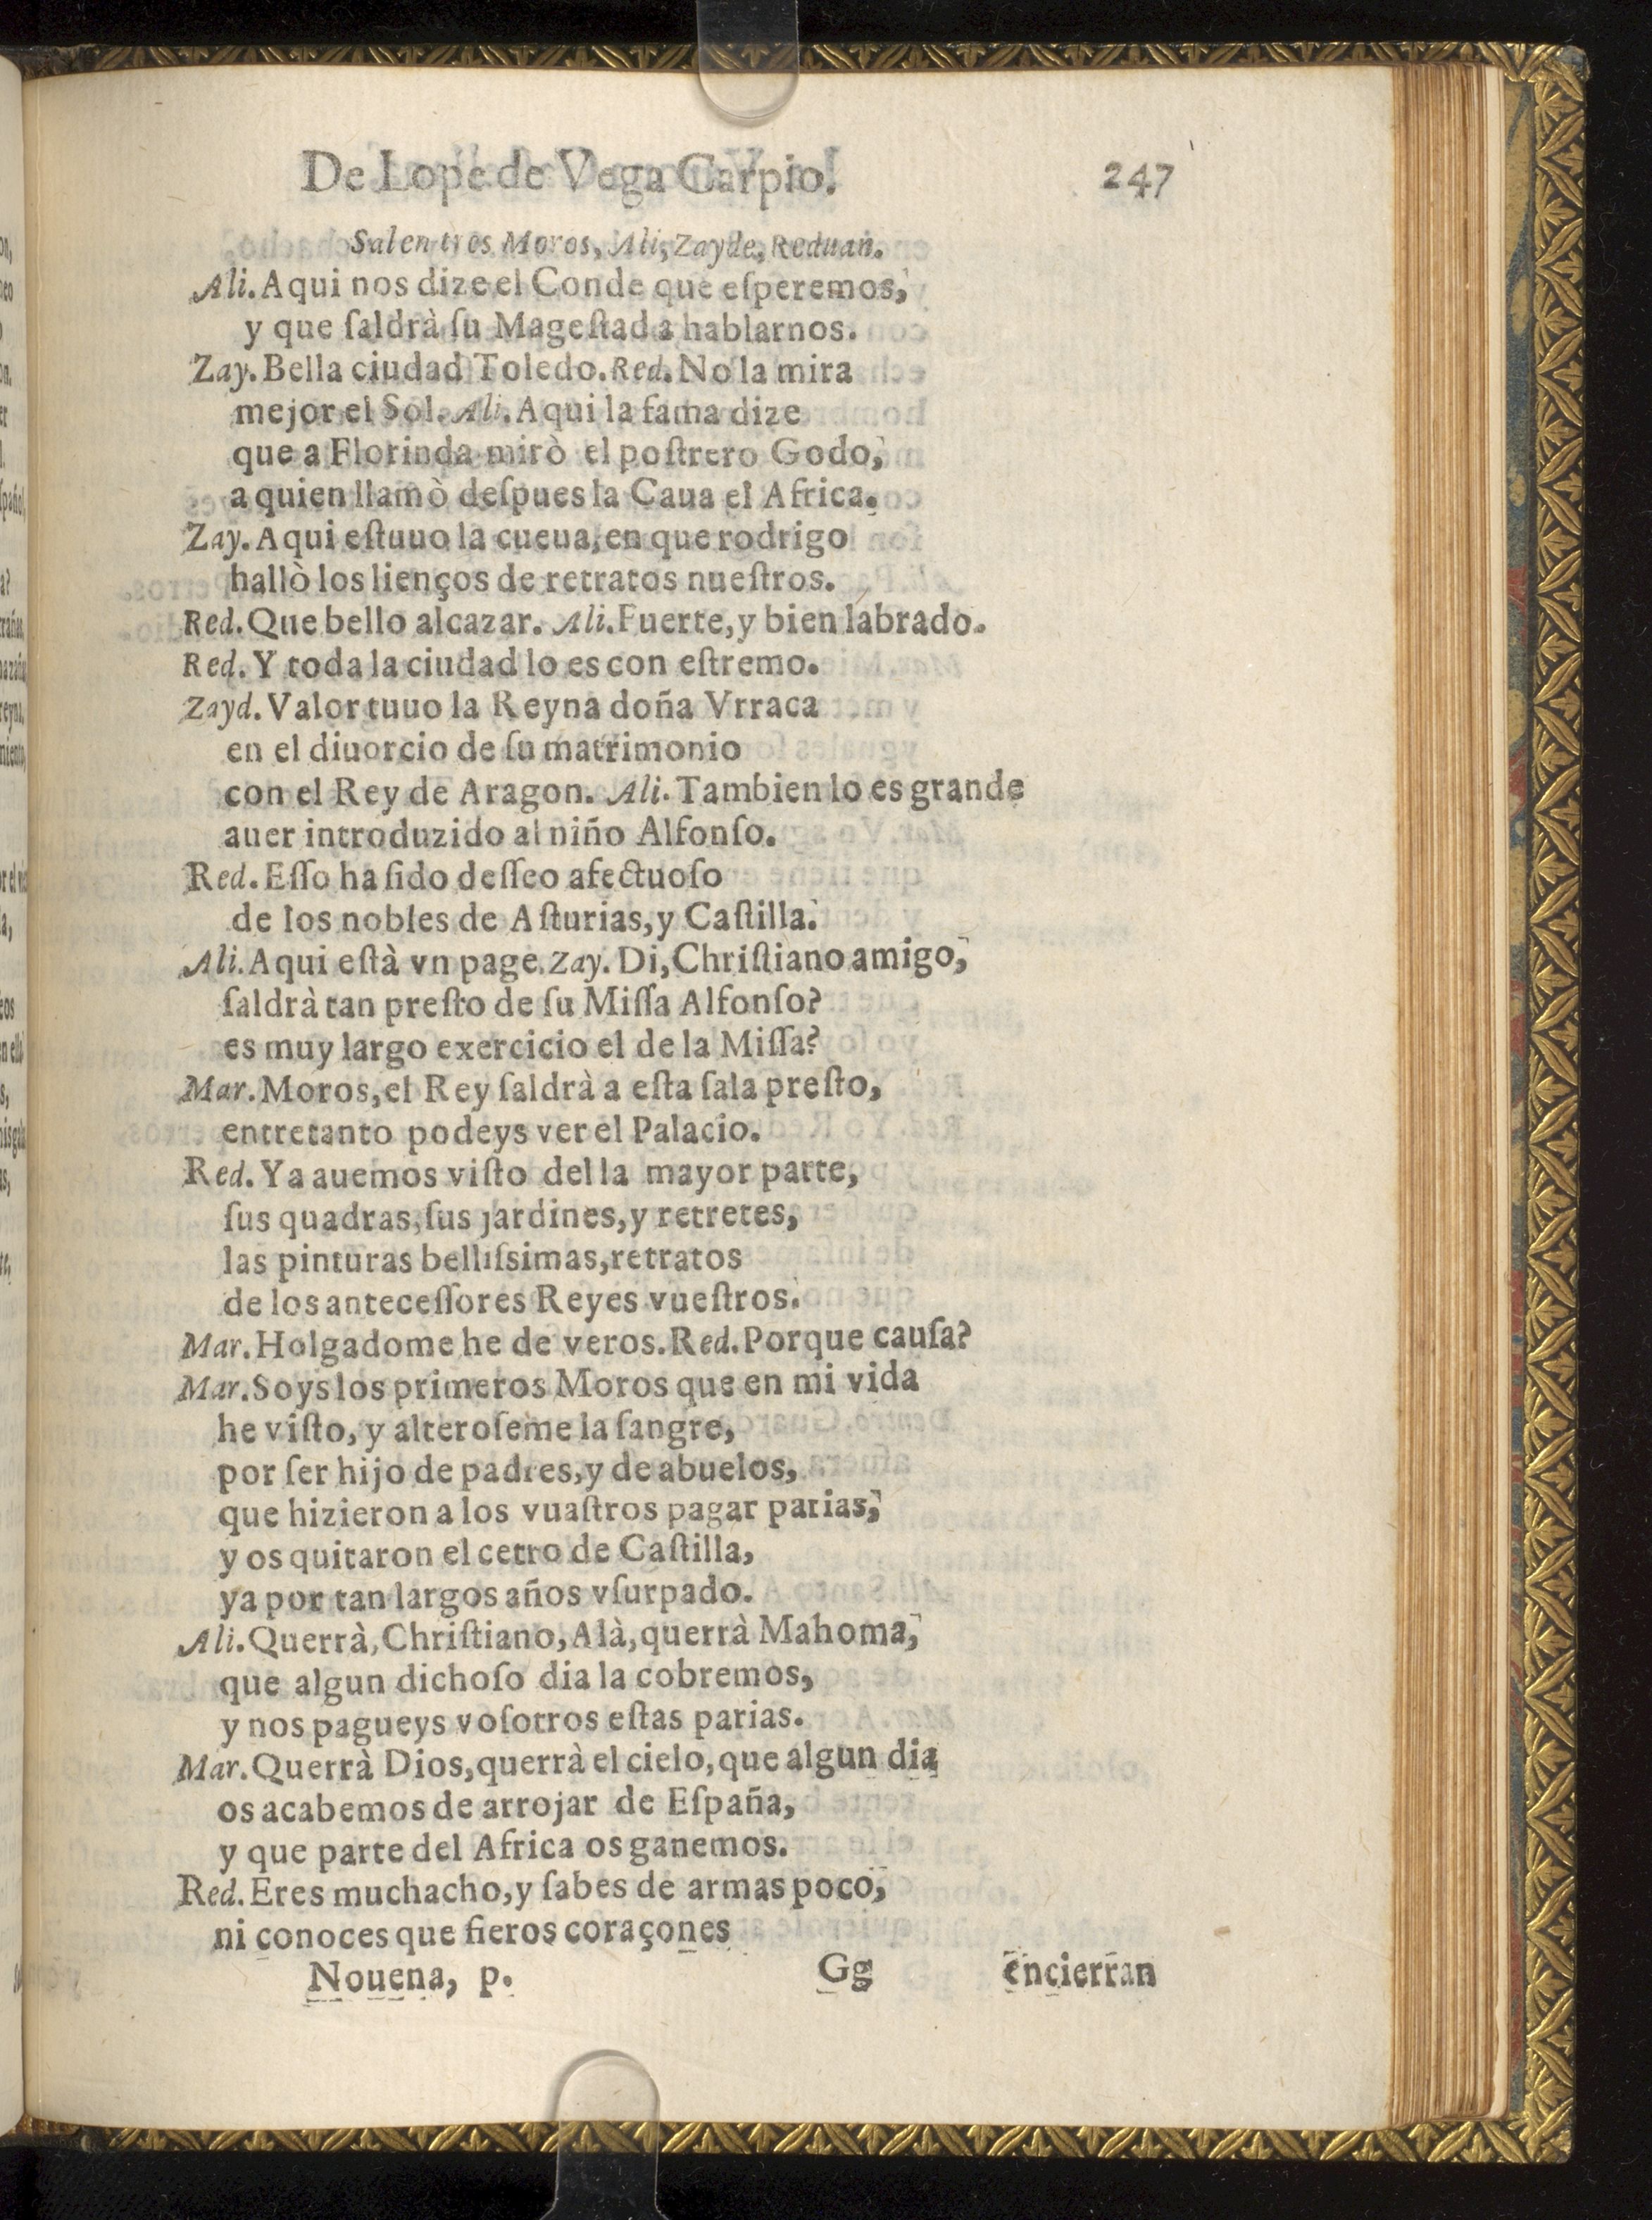 De Lope de Vega Carpio. 247
Salen tres Moros, Ali, Zayde, Reduan.
Ali. Aqui nos dize el Conde que eſperemos,
y que ſaldrà ſu Mageſtad a hablarnos.
Zay. Bella ciudad Toledo. Red. No la mira
mejor el Sol. Ali. Aqui la fama dize
que a Florinda mirò el poſtrero Godo,
a quien llamò deſpues la Caua el Africa.
Zay. Aqui eſtuuo la cueua, en que rodrigo
hallò los lienços de retratos nueſtros.
Red. Que bello alcazar. Ali. Fuerte, y bien labrado.
Red. Y toda la ciudad lo es con eſtremo.
Zayd. Valor tuuo la Reyna doña Vrraca
en el diuorcio de ſu matrimonio
con el Rey de Aragon. Ali. Tambien lo es grande
auer introduzido al niño Alfonſo.
Red. Eſſo ha ſido deſſeo afectuoſo
de los nobles de Aſturias, y Caſtilla.
Ali. Aqui eſtà vn page. Zay. Di, Chriſtiano amigo,
ſaldrà tan preſto de ſu Miſſa Alfonſo?
es muy largo exercicio el de la Miſſa?
Mar. Moros, el Rey ſaldrà a eſta ſala preſto,
entretanto podeys ver el Palacio.
Red. Ya auemos viſto del la mayor parte,
ſus quadras, ſus jardines, y retretes,
las pinturas belliſsimas, retratos
de los anteceſſores Reyes vueſtros.
Mar. Holgadome he de veros. Red. Porque cauſa?
Mar. Soys los primeros Moros que en mi vida
he viſto, y alteroſeme la ſangre,
por ſer hijo de padres, y de abuelos,
que hizieron a los vuaſtros pagar parias,
y os quitaron el cetro de Caſtilla,
ya por tan largos años vſurpado.
Ali. Querrà, Chriſtiano, Alà, querrà Mahoma,
que algun dichoſo dia la cobremos,
y nos pagueys voſotros eſtas parias.
Mar. Querrà Dios, querrà el cielo, que algun dia
os acabemos de arrojar de Eſpaña,
y que parte del Africa os ganemos.
Red. Eres muchacho, y ſabes de armas poco,
ni conoces que fieros coraçones
Nouena, p. Gg encierran